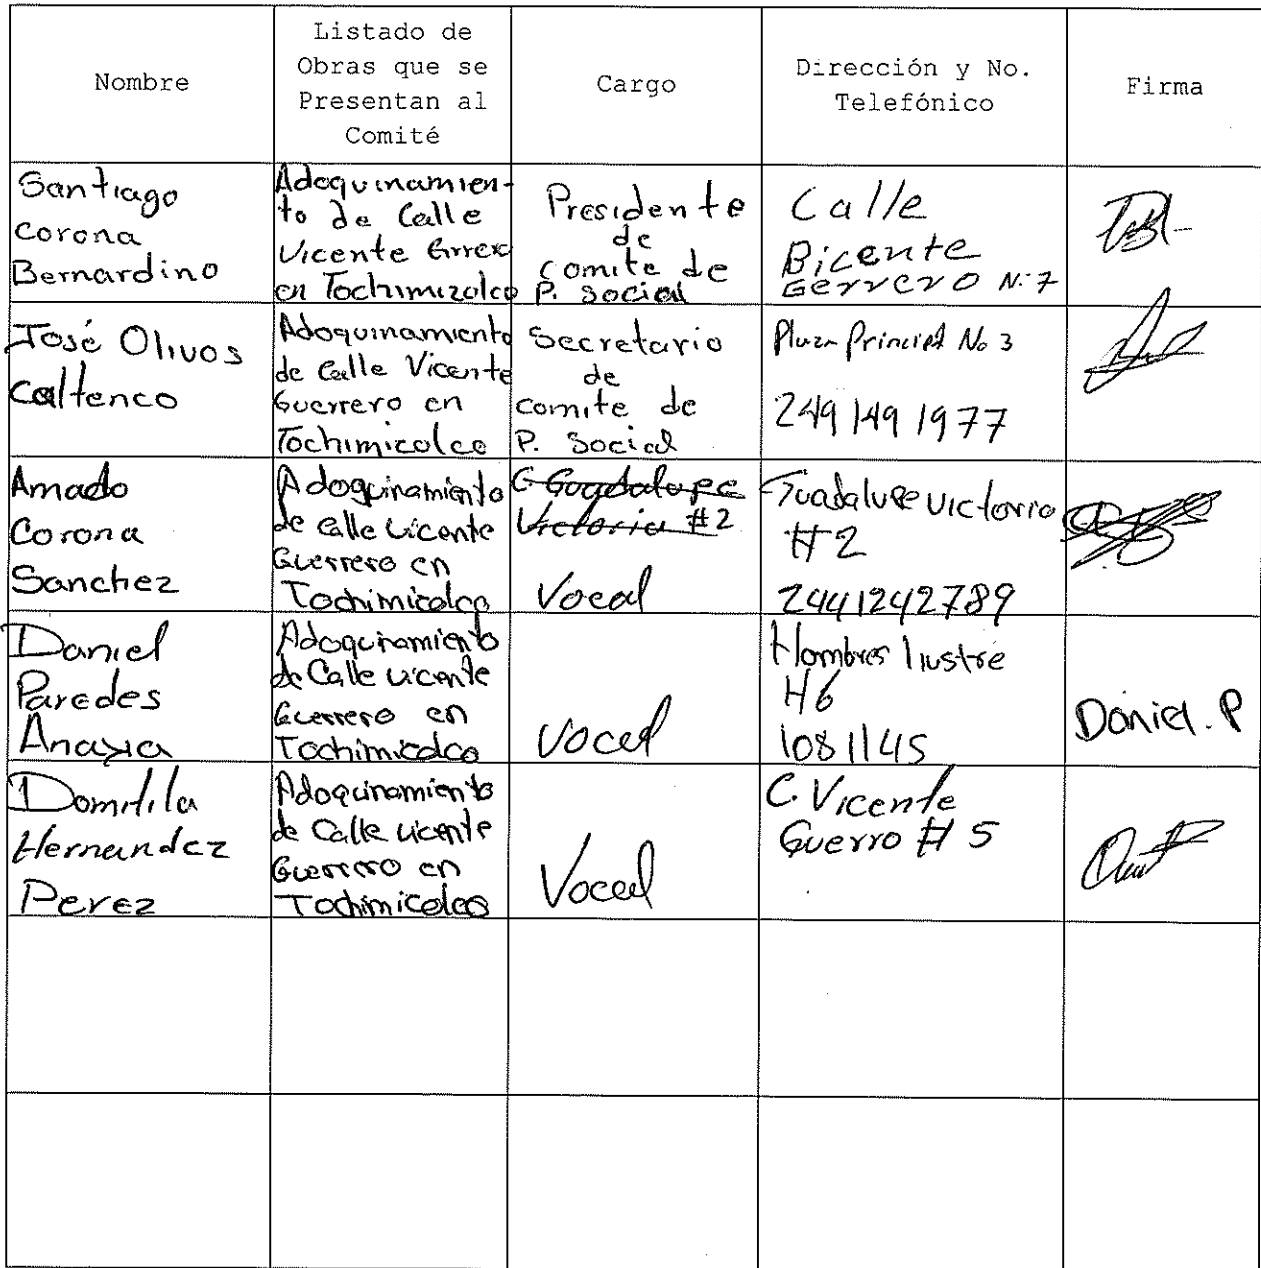 Nombre
Listado de
Obras que se
Presentan al
Comité
Cargo
Dirección y No.
Telefónico
Firma
Santiago
Corona
Bernardino
Adoquinamien-
to de Calle
Vicente
en Tochimizolco
Presidente
de
comite de
P. Social
Calle
Bicente
Gerrero N.7
José Olivos
Caltenco
Adoquinamiento
de Calle Vicente
Guerrero en
Tochimicolco
Secretario
de
comite de
P. Social
Plaza Principal No 3
249 149 1977
Amado
Corona
Sanchez
Adoquinamiento
de calle Vicente
Guerrero en
Tochimicolco
C Guadalupe
Victoria #2
Vocal
Guadalupe Victoria
#2
2441242789
Daniel
Paredes
Anaya
Adoquinamiento
de Calle Vicente
Guerrero en
Tochimicolco
Vocal
Hombres Ilustre
#6
1081145
Daniel. P
Domitila
Hernandez
Perez
Adoquinamiento
de Calle Vicente
Guerrero en
Tochimicolco
Vocal
C. Vicente
Guerro # 5